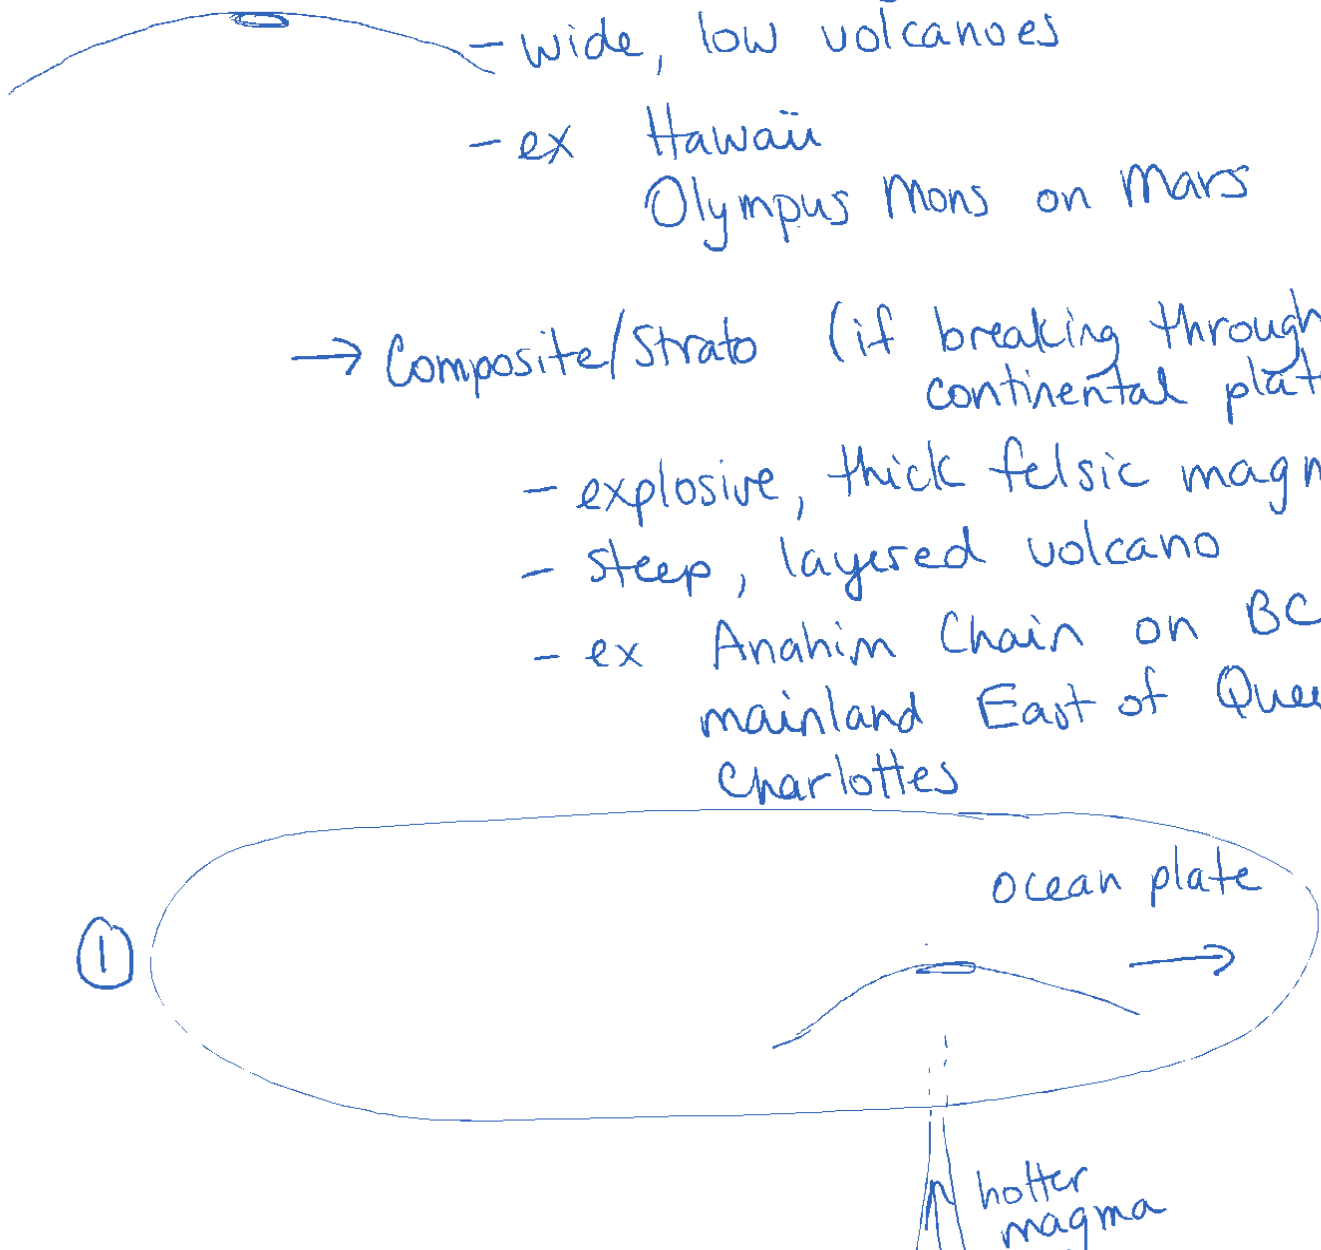 - wide, low volcanoes
- ex Hawaii
Olympus Mons on Mars
→ Composite/Strato (if breaking through
continental plat
- explosive, thick felsic magm
- steep, layered volcano
- ex Anahim Chain on BC
mainland East of Quee
Charlottes
ocean plate
1
→
hotter
magma